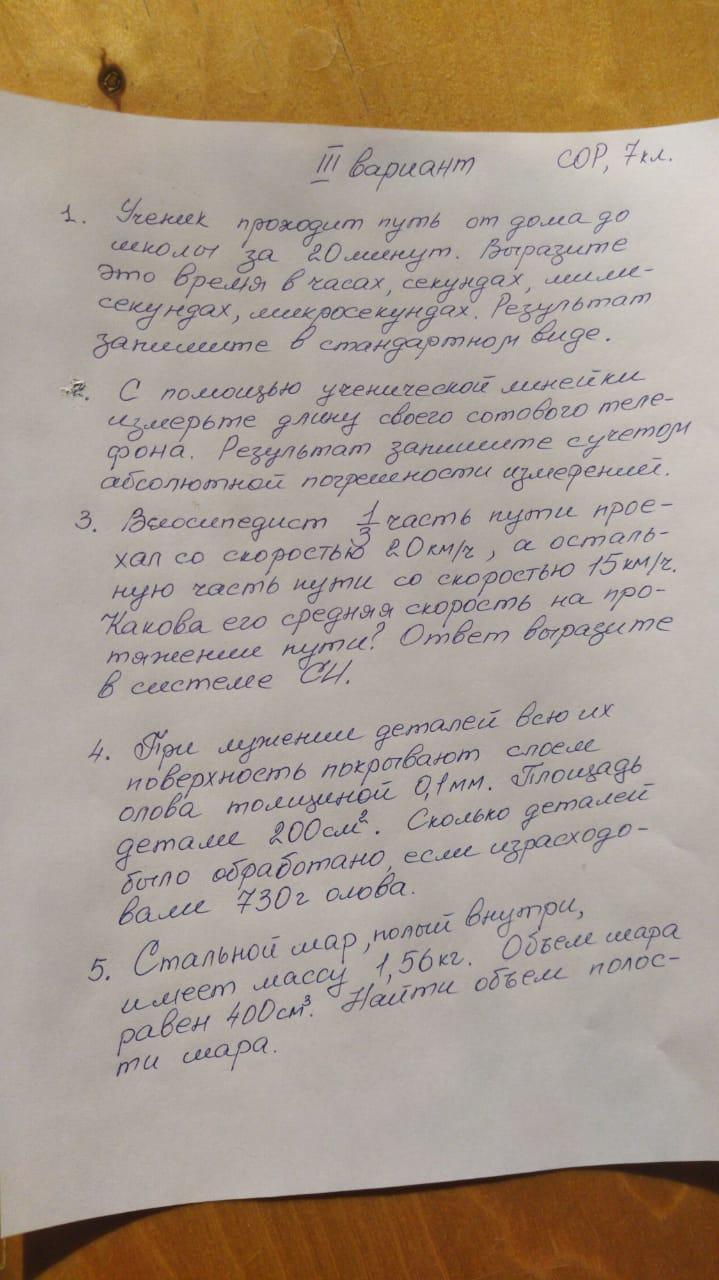 III вариант СОР, 7кл.
1. Ученик проходит путь от дома до
школы за 20 минут. Выразите
это время в часах, секундах, милли-
секундах, микросекундах. Результат
запишите в стандартном виде.
2. С помощью ученической линейки
измерьте длину своего сотового теле-
фона. Результат запишите с учетом
абсолютной погрешности измерений.
3. Велосипедист 1/3 часть пути прое-
хал со скоростью 20 км/ч, а осталь-
ную часть пути со скоростью 15 км/ч.
Какова его средняя скорость на про-
тяжении пути? Ответ выразите
в системе СИ.
4. При лужении деталей всю их
поверхность покрывают слоем
олова толщиной 0,1 мм. Площадь
детали 200 см². Сколько деталей
было обработано, если израсходо-
вали 730 г олова.
5. Стальной шар, полый внутри,
имеет массу 1,56 кг. Объем шара
равен 400 см³. Найти объем полос-
ти шара.